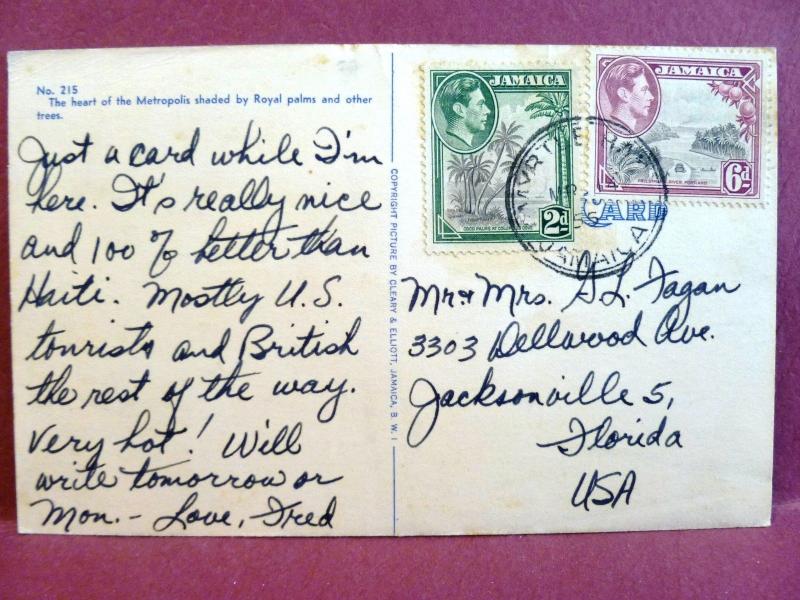 No. 215
The heart of the Metropolis shaded by Royal palms and other
trees.
Just a card while I'm
here. It's really nice
and 100% better than
Haiti. Mostly U.S.
tourists and British
the rest of the way.
Very hot! Will
write tomorrow or
Mon. - Love, Fred
COPYRIGHT PICTURE BY CLEARY & ELLIOTT, JAMAICA, B. W. I
JAMAICA
2d
COCO PALMS AT COLUMBUS COVE
JAMAICA
6d
PORTLAND
CARD
JAMAICA
Mr & Mrs. G.L. Fagan
3303 Dellwood Ave.
Jacksonville 5,
Florida
USA